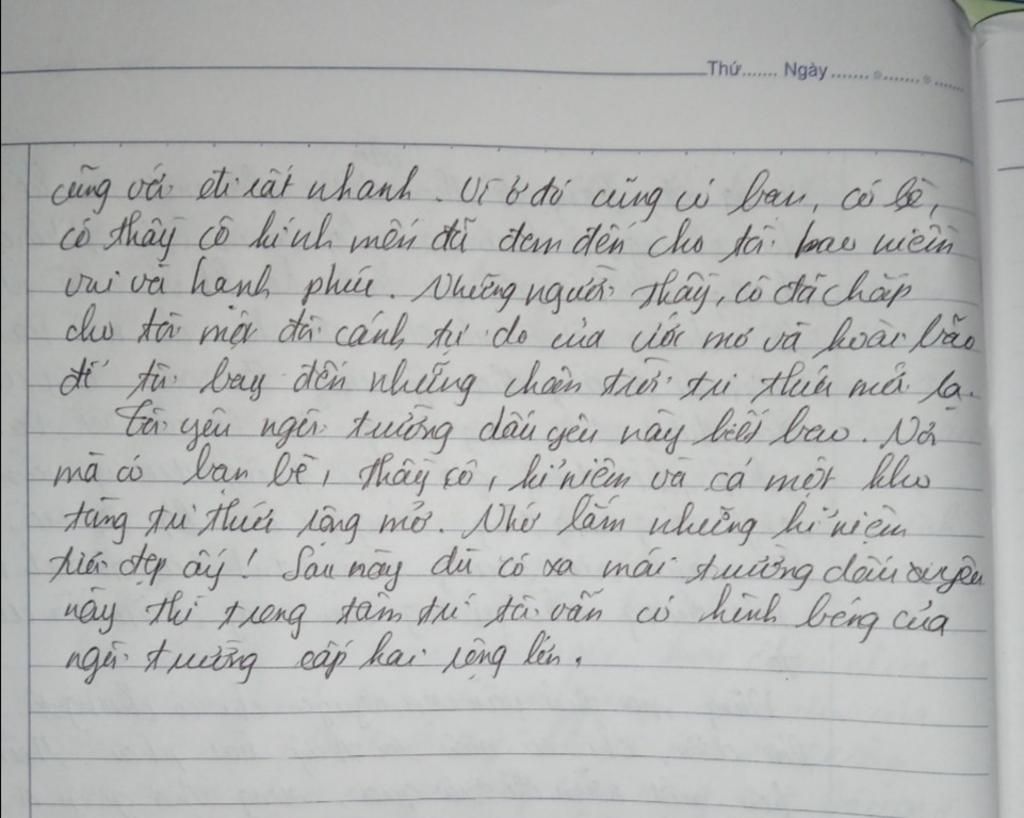 Thứ....... Ngày.......
cũng vơi đi rất nhanh. Vì ở đó cũng có bạn, có bè,
có thầy cô kính mến đã đem đến cho tôi bao niềm
vui và hạnh phúc. Những người thầy, cô đã chắp
cho tôi một đôi cánh tự do của ước mơ và hoài bão
để tôi bay đến những chân trời tri thức mới lạ.
Tôi yêu ngôi trường dấu yêu này biết bao. Nơi
mà có bạn bè, thầy cô, kỉ niệm và cả một kho
tàng tri thức rộng mở. Nhớ lắm những kỉ niệm
tươi đẹp ấy! Sau này dù có xa mái trường dấu yêu
này thì trong tâm trí tôi vẫn có hình bóng của
ngôi trường cấp hai rộng lớn.